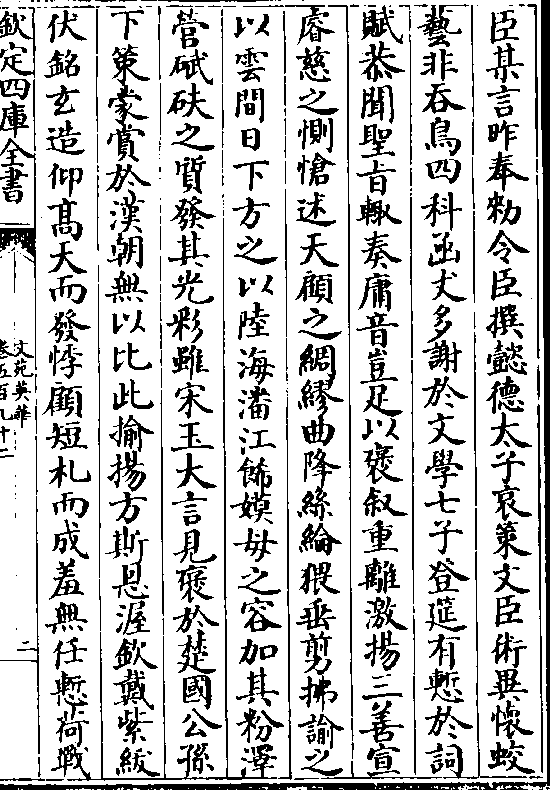 臣某言昨奉勑令臣撰懿德太子哀策文臣術異懷蛟
藝非吞鳥四科函丈多謝於文學七子登筵有慙於詞
賦恭聞聖旨輙奏庸音豈足以褒叙重離激揚三善宣
睿慈之惻愴述天顧之綢繆曲降絲綸猥垂剪拂諭之
以雲間日下方之以陸海潘江飾嫫母之容加其粉澤
營碔砆之質發其光彩雖宋玉大言見褒於楚國公孫
下策蒙賞於漢朝無以比此揄揚方斯恩渥欽戴紫紱
伏銘玄造仰髙天而發悸顧短札而成羞無任慙荷戰
欽定四庫全書
文苑英華
卷五百九十二
二